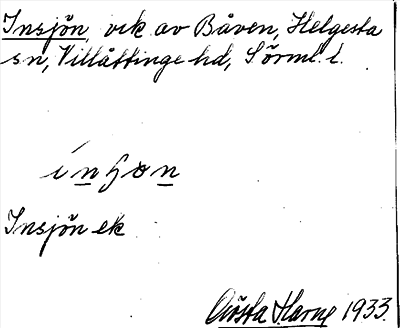 Insjön, vik av Båven, Helgesta
sn, Villåttinge hd, Sörml. l.
Insjön ek
Gösta Harne 1933.